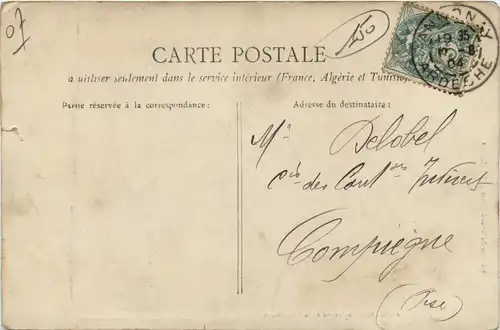 07
CARTE POSTALE
à utiliser seulement dans le service intérieur (France, Algérie et Tunisie)
Partie réservée à la correspondance :
Adresse du destinataire :
ANNONAY
ARDÈCHE
Mr Delobel
des Contons
Compiègne
(Oise)